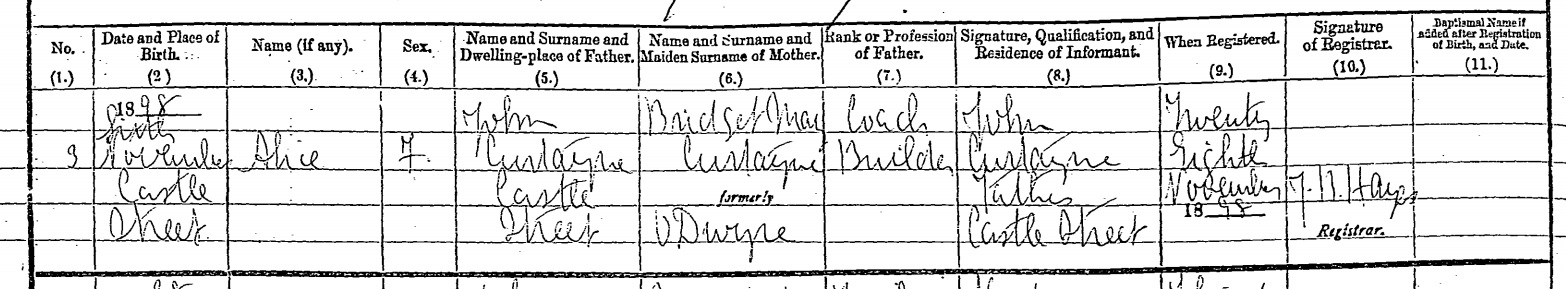 No. Date and Place of Birth. Name (if any). Sex. Name and Surname and Dwelling-place of Father. Name and Surname and Maiden Surname of Mother. Rank or Profession of Father. Signature, Qualification, and Residence of Informant. When Registered. Signature of Registrar. Baptismal Name if added after Registration of Birth, and Date.
(1.) (2) (3.) (4.) (5.) (6.) (7.) (8.) (9.) (10.) (11.)
1898
John Bridget May Coach John Twenty
3 November Alice F. Custayne Custayne Builder Custayne Eighth
Castle Castle formerly Father November
1898
Street Street O'Dwyne Castle Street Registrar.